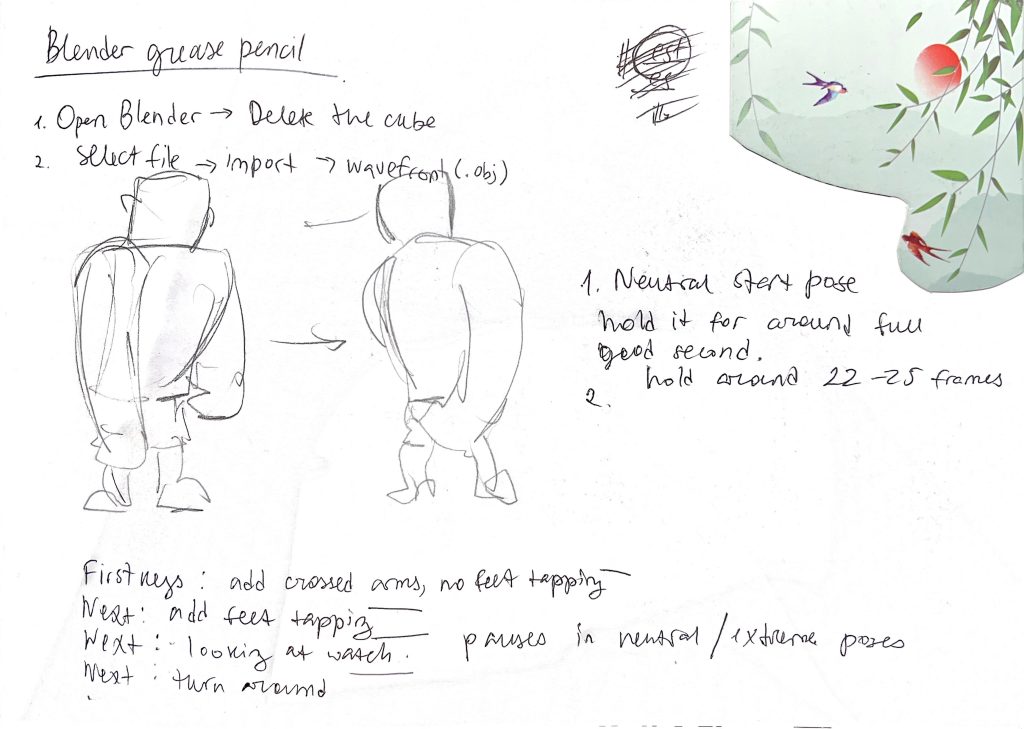 Blender grease pencil
1. Open Blender → Delete the cube
2. Select file → import → wavefront (.obj)
1. Neutral start pose
hold it for around full
good second.
hold around 22-25 frames
2.
First keys: add crossed arms, no feet tapping
Next: add feet tapping
Next: looking at watch.
pauses in neutral/extreme poses
Next: turn around